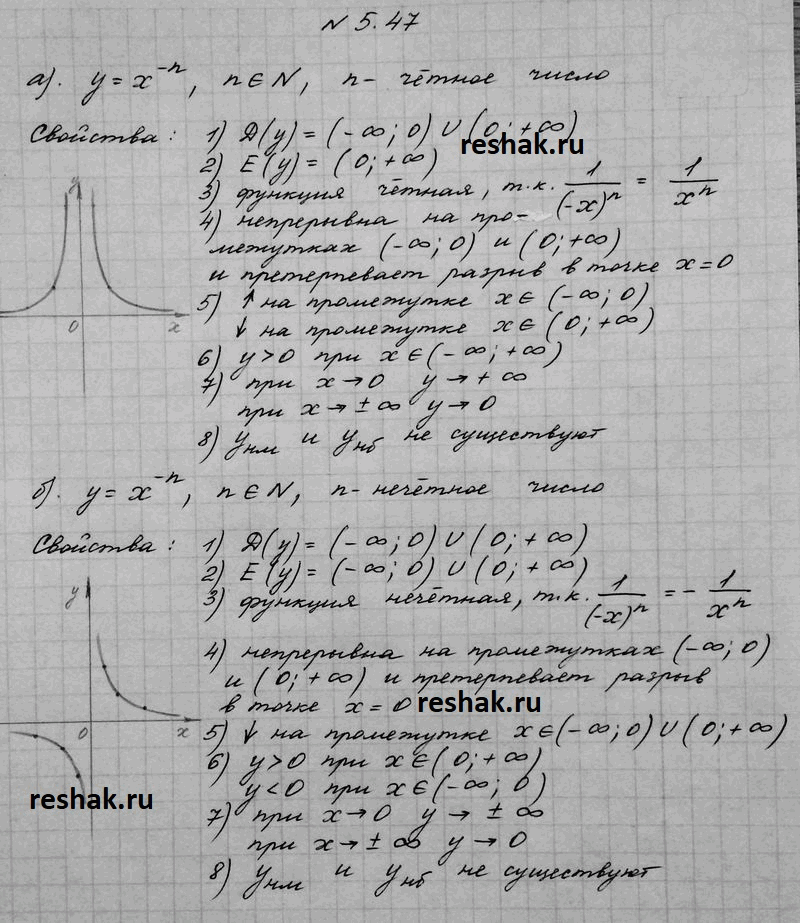 N 5.47
а). y = x^{-n}, n ∈ N, n - чётное число
Свойства: 1) D(y) = (-∞; 0) ∪ (0; +∞)
reshak.ru
2) E(y) = (0; +∞)
3) функция чётная, т.к. 1/(-x)^n = 1/x^n
4) непрерывна на про-
межутках (-∞; 0) и (0; +∞)
и претерпевает разрыв в точке x = 0
5) ↑ на промежутке x ∈ (-∞; 0)
↓ на промежутке x ∈ (0; +∞)
6) y > 0 при x ∈ (-∞; +∞)
7) при x → 0 y → + ∞
при x → ± ∞ y → 0
8) yнм и yнб не существуют
y
0
x
б). y = x^{-n}, n ∈ N, n - нечётное число
Свойства: 1) D(y) = (-∞; 0) ∪ (0; +∞)
2) E(y) = (-∞; 0) ∪ (0; +∞)
3) функция нечётная, т.к. 1/(-x)^n = - 1/x^n
4) непрерывна на промежутках (-∞; 0)
и (0; +∞) и претерпевает разрыв
в точке x = 0
reshak.ru
5) ↓ на промежутке x ∈ (-∞; 0) ∪ (0; +∞)
6) y > 0 при x ∈ (0; +∞)
y < 0 при x ∈ (-∞; 0)
7) при x → 0 y → ± ∞
при x → ± ∞ y → 0
8) yнм и yнб не существуют
y
0
x
reshak.ru